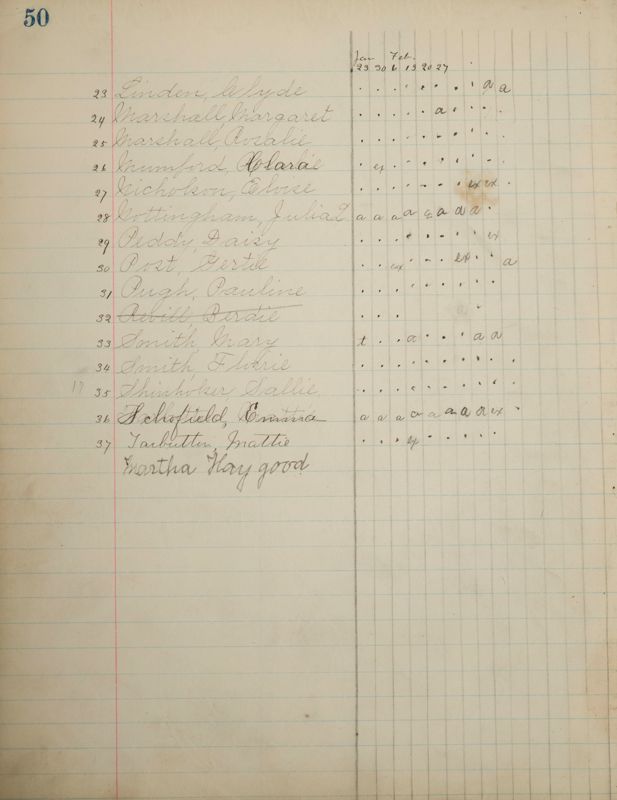 50
Jan Feb.
23 30 6 13 20 27
23 Linden, Clyde . . . . . . . . a a
24 Marshall, Margaret . . . . . . a . . .
25 Marshall, Rosalie . . . . . . . . . .
26 Mumford, Claradie . ex . . . . . . . .
27 Nicholson, Eloise . . . . . . . ex ex .
28 Cottingham, Julia a a a a a a a a .
29 Peddy, Daisy . . . . . . . . ex
30 Post, Gertie . . ex . . . ex . . a
31 Pugh, Pauline . . . . . . . . .
32 Revill, Berdie . . . a .
33 Smith, Mary t . . a . . . . a a
34 Smith, Florie . . . . . . . . . .
17 35 Shinholser, Sallie . . . . . . . . . .
36 Schofield, Emma a a a a a a a a ex .
37 Tarbutton, Mattie . . . ex . . . . .
Martha Haygood